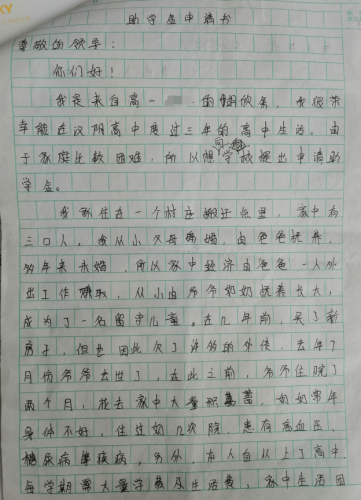 助学金申请书
尊敬的领导：
你们好！
我是来自高一 的 欣，我很荣
幸能在汉阴高中度过三年的高中生活。由
于家庭比较困难，所以想向学校提出申请助
学金。
我家住在一个村庄搬迁点里，家中有
三口人，我从小父母离婚，由爸爸抚养，
多年来未婚，所以家中经济由爸爸一人外
出工作赚取，从小由爷爷奶奶抚养长大，
成为了一名留守儿童。在几年前，买了新
房子，但也因此欠了许多的外债，去年7
月份爷爷去世了，在此之前，爷爷住院了
两个月，花去家中大量积蓄，奶奶常年
身体不好，住过好几次院，患有高血压，
糖尿病等疾病，另外，本人自从上了高中，
每学期需大量学费及生活费，家中生活因